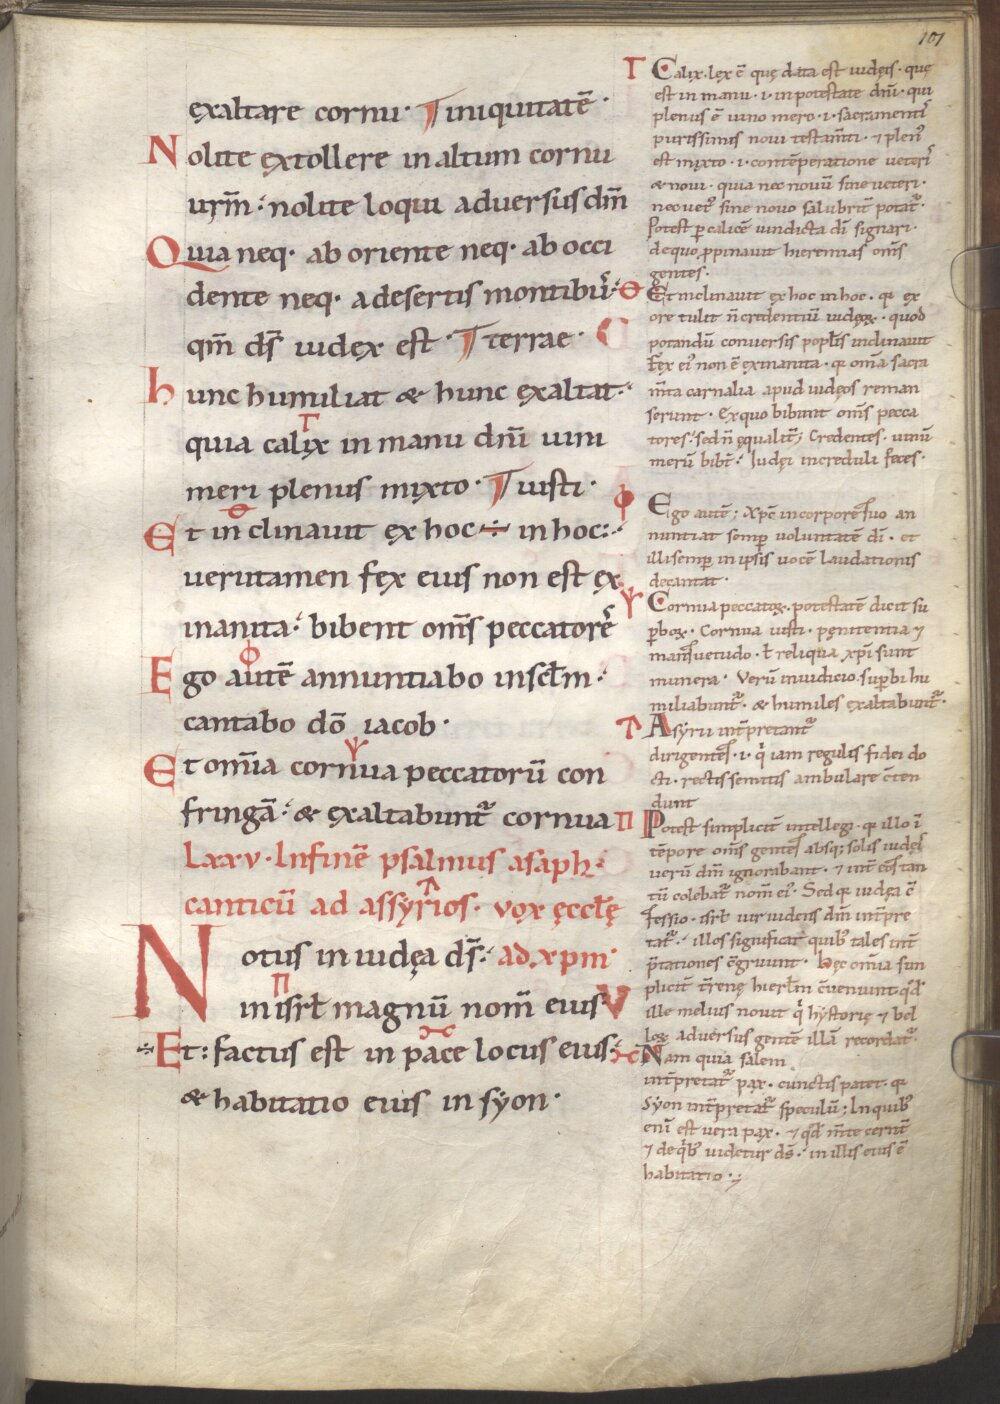 101
exaltare cornu · iniquitatē ·
Nolite extollere in altum cornu
urm̄ : nolite loqui adversus dm̄
Quia neq· ab oriente neq· ab occi
dente neq· a desertis montibus :
qm̄ ds̄ iudęx est · terrae ·
hunc humiliat & hunc exaltat :
quia calix in manu dn̄i uini
meri plenus mixto · iusti ·
Et inclinauit ex hoc ÷ in hoc :
uerutamen fęx eius non est ex
inanita : bibent om̄s peccatores
Ego autē annuntiabo in sc̄lm :
cantabo dō iacob ·
Et om̄ia cornua peccatorū con
fringā : & exaltabunt᷑ cornua
Lxxv · In finē psalmus asaph ·
canticū ad assyrios · vox ęccl̄ę
Notus in iudęa ds̄ : ad xpm̄ ·
in isrl̄ magnū nom̄ eius
÷ Et : factus est in pace locus eius :
& habitatio eius in syon ·
Γ Calix · lex ē quę data est iudęis · quę
est in manu · i · in potestate dn̄i · qui
plenus ē uino mero · i · sacramenti
purissimis noui testam̄ti · ⁊ plen᷒
est mixto · i · contēperatione ueteris
& noui · quia nec nouū sine ueteri ·
nec uet᷒ sine novo salubrit̄ potat᷑ ·
Potest p̱ calicē uindicta dī signari ·
de quo p̱pinauit hieremias om̄s
gentes ·
Θ Et inclinauit ex hoc in hoc · q̄ ex
ore tulit n̄ credentiū iudęoꝝ · quod
potandū conversis popl̄is inclinauit
Fęx ei᷒ non ē exinanita · q̄ om̄a sacra
m̄ta carnalia apud iudęos reman
serunt · Ex quo bibunt om̄s pecca
tores : sed n̄ ęqualit̄ ; Credentes · uinū
merū bibt̄ : Iudęi increduli feces ·
Φ Ego autē ; Xpc̄ in corpore suo an
nuntiat semp̱ voluntatē dī · et
illi semp̱ in ipsis uocē laudationis
decantat ·
Ψ Cornua peccatoꝝ · potestatē dicit su
p̱boꝝ · Cornua iusti · pęnitentia ⁊
mansuetudo · ł reliqua xpī sunt
munera · Verū in iudicio sup̱bi hu
miliabunt᷑ · & humiles exaltabunt᷑ ·
Asyrii int̄pretant᷑
dirigentes · i · q̄ iam regulis fidei do
cti · rectis semitis ambulare c̄ten
dunt
Π Potest simplicit̄ intellegi · q̄ illo ī
tēpore om̄s gentes absq; solis iudęis
uerū dm̄ ignorabant · ⁊ int̄ eos tan
tū colebat᷑ nom̄ ei᷒ · Sed q̄ iudęa c̄
fessio · isrl̄ uir uidens dm̄ int̄pre
tat᷑ : illos significat quib᷒ tales int̄
p̄tationes c̄gruunt · Hęc om̄ia sim
plicit̄ t̄renę hierl̄m c̄ueniunt · qd̄
ille melius nouit q̄ hystorię ⁊ bel
loꝝ adversus gentē illā recordat᷑ ·
Nam quia salem
int̄pretat᷑ pax · cunctis patet · q̄
Syon int̄pretat᷑ speculū ; In quib᷒
enī est uera pax · ⁊ qd̄ m̄te cernit̄
⁊ de q̄b᷒ uidetur ds̄ : in illis eius ē
habitatio ·